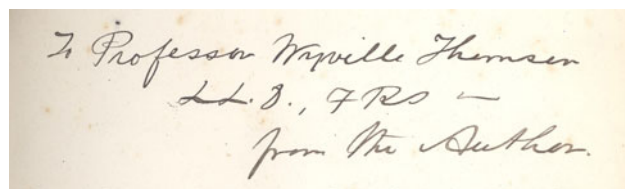 To Professor Wyville Thomson
LL.D., FRS —
from the Author.